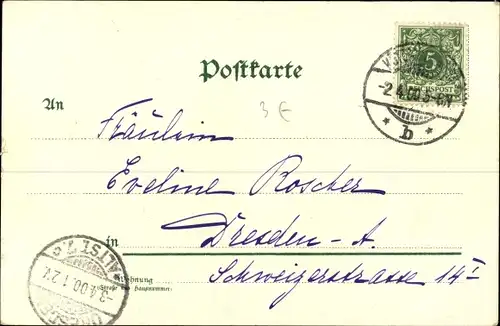 Postkarte
5
REICHSPOST
-2.4.00.5-6N
* b *
An
3 €
Fräulein
Eveline Roscher
in Dresden-A.
Wohnung
(Straße und Hausnummer)
Schweizerstrasse 14 I
ALTST.
-3.4.00.1-2V.
DRESDEN